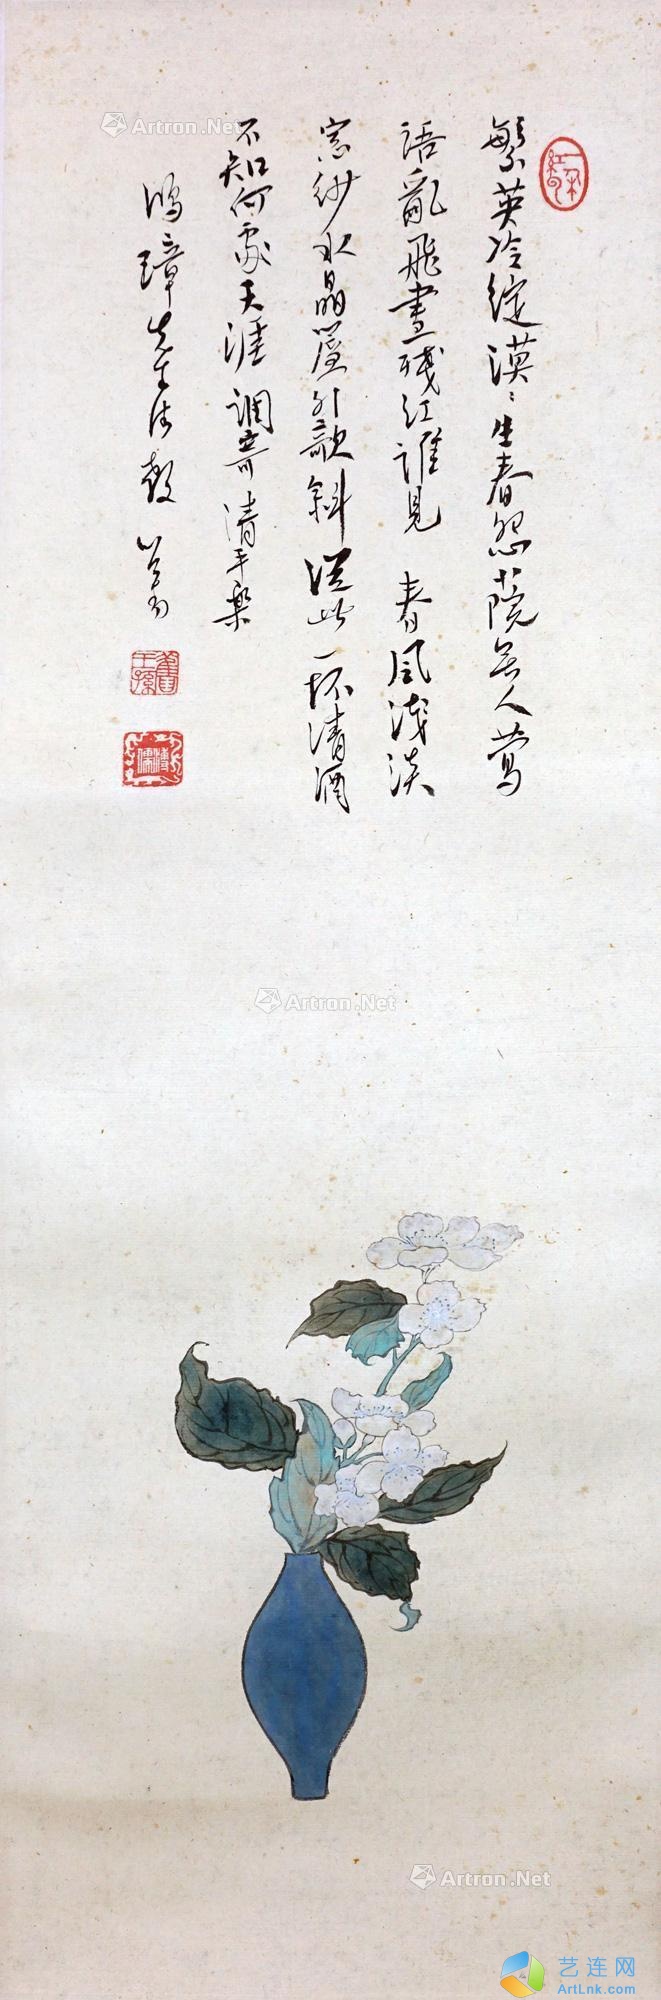 繁英冷綻漠〻生春愁院無人鶯
語亂飛盡殘紅誰見 春風淺淡
窓紗水晶簾外欹斜 從此一杯清酒
不知何處天涯 調寄清平樂
鴻璋先生法教 溥儒
舊王孫
溥儒
Artron.Net
Artron.Net
Artron.Net
艺连网
ArtLnk.com